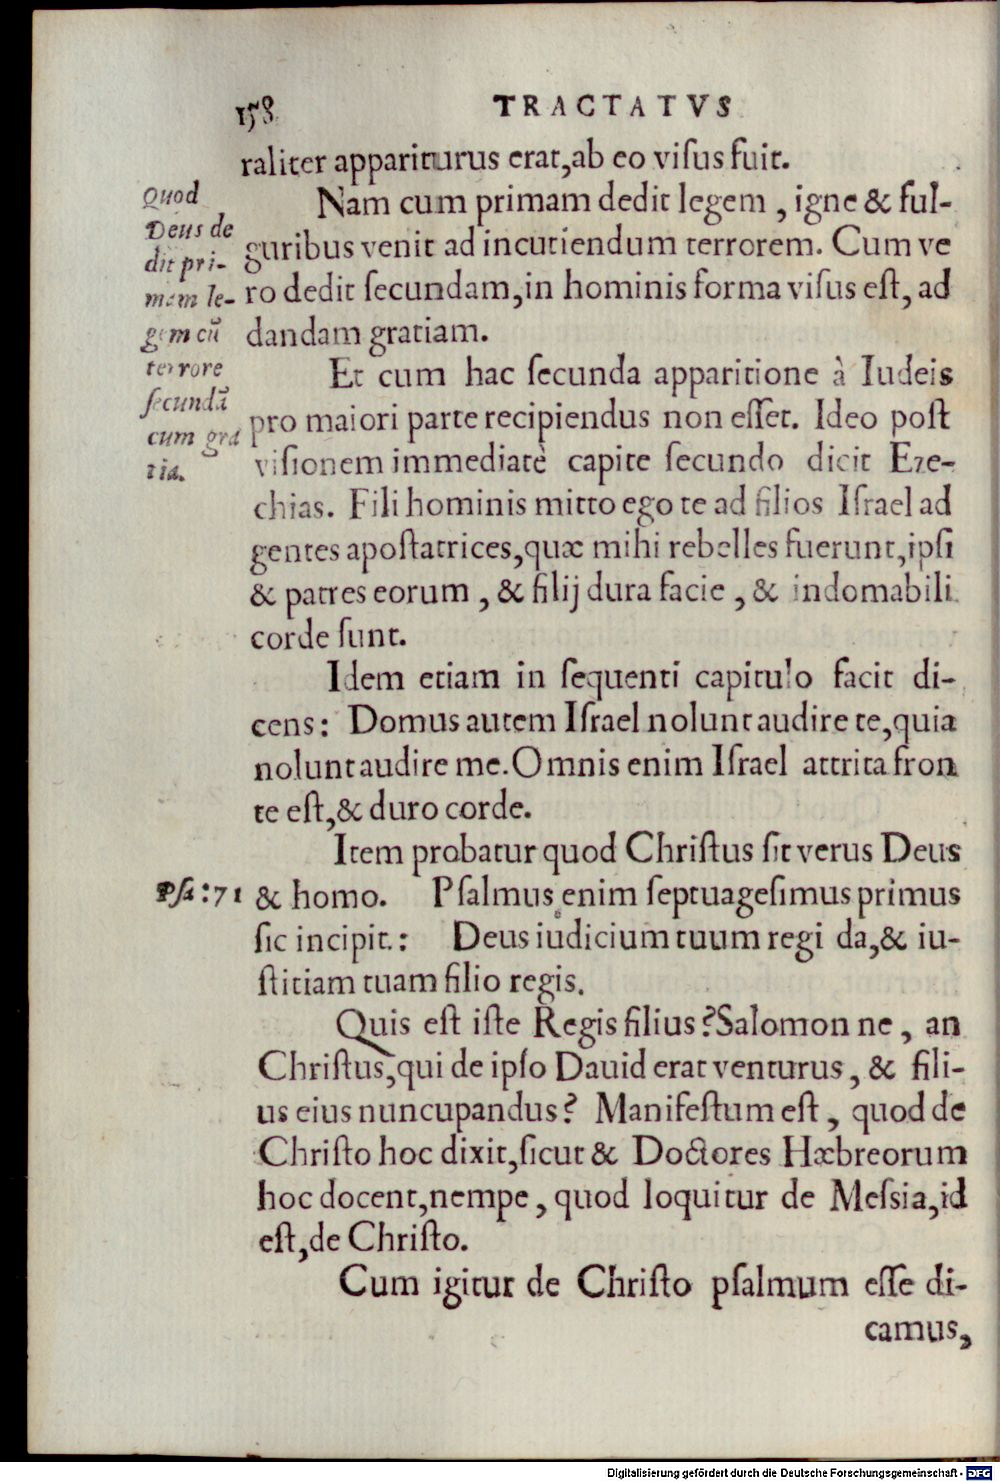 158 TRACTATVS
raliter appariturus erat,ab eo viſus fuit.
Nam cum primam dedit legem , igne & ful-
guribus venit ad incutiendum terrorem. Cum ve
ro dedit ſecundam,in hominis forma viſus eſt, ad
dandam gratiam.
Quod
Deus de
dit pri-
mam le-
gem cũ
terrore
ſecundã
cum gra
tia.
Et cum hac ſecunda apparitione à Iudeis
pro maiori parte recipiendus non eſſet. Ideo poſt
viſionem immediatè capite ſecundo dicit Eze-
chias. Fili hominis mitto ego te ad filios Iſrael ad
gentes apoſtatrices,quæ mihi rebelles fuerunt,ipſi
& patres eorum , & filij dura facie , & indomabili
corde ſunt.
Idem etiam in ſequenti capitulo facit di-
cens: Domus autem Iſrael nolunt audire te,quia
nolunt audire me. Omnis enim Iſrael attrita fron
te eſt,& duro corde.
Item probatur quod Chriſtus ſit verus Deus
Pſa:71 & homo. Pſalmus enim ſeptuageſimus primus
ſic incipit.: Deus iudicium tuum regi da,& iu-
ſtitiam tuam filio regis.
Quis eſt iſte Regis filius? Salomon ne , an
Chriſtus,qui de ipſo Dauid erat venturus , & fili-
us eius nuncupandus? Manifeſtum eſt , quod de
Chriſto hoc dixit,ſicut & Doctores Hæbreorum
hoc docent,nempe , quod loquitur de Meſsia,id
eſt,de Chriſto.
Cum igitur de Chriſto pſalmum eſſe di-
camus,
Digitalisierung gefördert durch die Deutsche Forschungsgemeinschaft - DFG